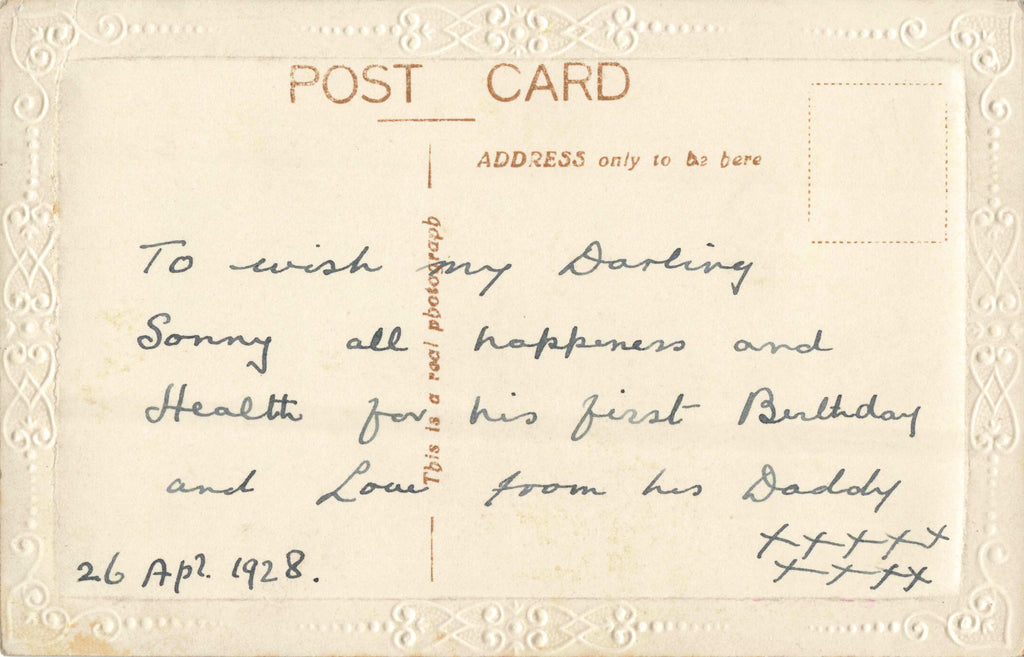 POST CARD
ADDRESS only to be here
This is a real photograph
To wish my Darling
Sonny all happiness and
Health for his first Birthday
and Love from his Daddy
x x x x x
x x x x
26 Apl. 1928.